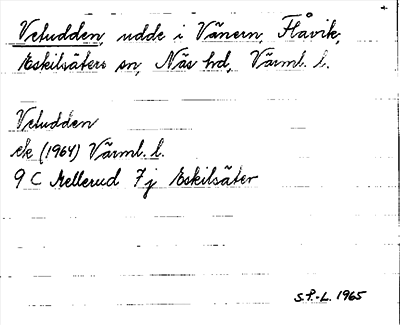 Vetudden, udde i Vänern, Flåvik,
Eskilsäters sn, Näs hd, Värml. l.
Vetudden
ek (1964) Värml. l.
9 C Mellerud 7j Eskilsäter
S.P.-L. 1965